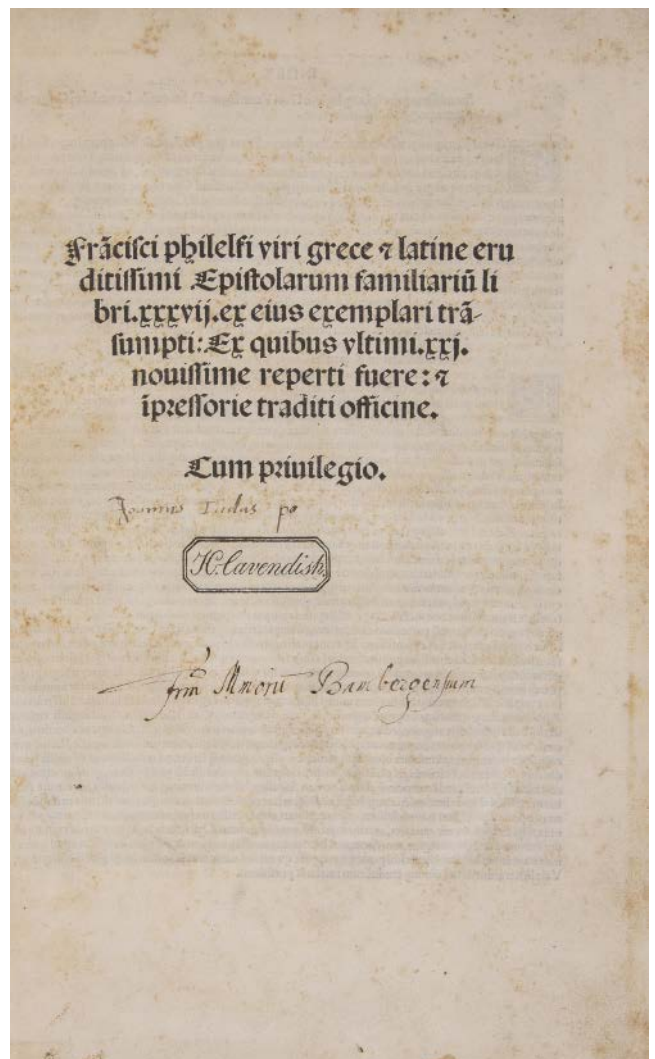 Frācisci philelfi viri grece ⁊ latine eru
ditissimi Epistolarum familiariū li
bri.xxxvij.ex eius exemplari trā-
sumpti: Ex quibus vltimi.xxj.
nouissime reperti fuere: ⁊
īpressorie traditi officine.
Cum priuilegio.
Joannes
H. Cavendish.
Bambergensium